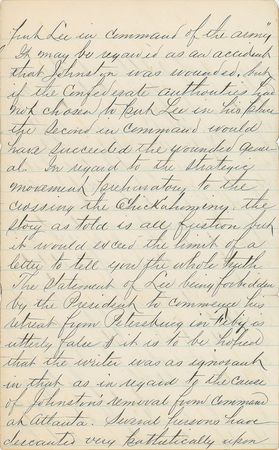 put Lee in command of the army
It may be regarded as an accident
that Johnston was wounded, but
if the Confederate authorities had
not chosen to put Lee in his place
the second in command would
have succeeded the wounded Gener-
al. In regard to the strategic
movement preparatory to the
crossing the Chickahominy. the
story as told is all fiction but
it would exceed the limit of a
letter to tell you the whole truth
The Statement of Lee being forbidden
by the President to commence his
retreat from Petersburg in Feby is
utterly false & it is to be hoped
that the writer was as ignorant
in that as in regard to the cause
of Johnston's removal from Command
at Atlanta. Several persons have
descanted very pathetically upon